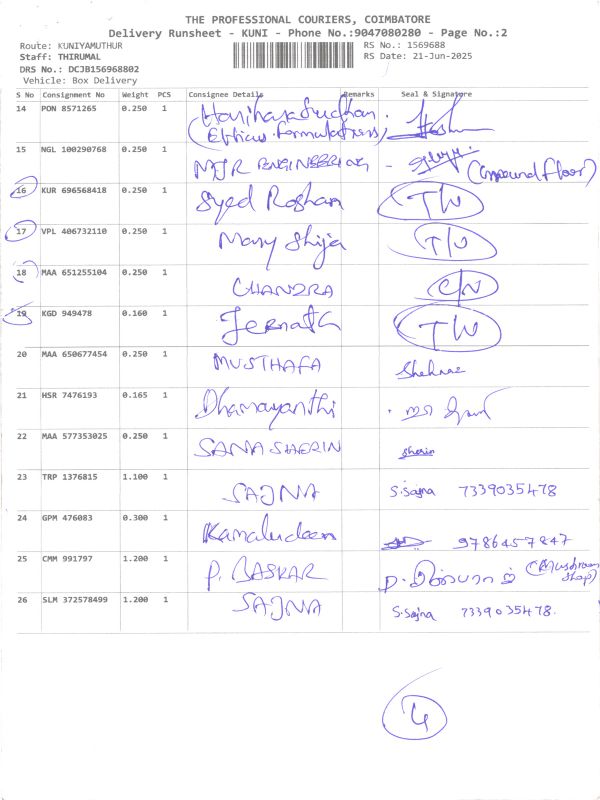 THE PROFESSIONAL COURIERS, COIMBATORE
Delivery Runsheet - KUNI - Phone No.:9047080280 - Page No.:2
Route: KUNIYAMUTHUR RS No.: 1569688
Staff: THIRUMAL RS Date: 21-Jun-2025
DRS No.: DCJB156968802
Vehicle: Box Delivery
S No Consignment No Weight PCS Consignee Details Remarks Seal & Signature
14 PON 8571265 0.250 1 Hariharasudhan.
(Ethicus Formulations)
15 NGL 100290768 0.250 1 MJR ENGINEERING - (Compound Floor)
16 KUR 696568418 0.250 1 Syed Roshan T/W
17 VPL 406732110 0.250 1 Mary Shija T/W
18 MAA 651255104 0.250 1 CHANDRA C/N
19 KGD 949478 0.160 1 Jeenath T/W
20 MAA 650677454 0.250 1 MUSTHAFA
21 HSR 7476193 0.165 1 Dhamayanthi
22 MAA 577353025 0.250 1 SANA SHERIN sherin
23 TRP 1376815 1.100 1 SAJNA S.Sajna 7339035478
24 GPM 476083 0.300 1 Kamaludeen 9786457847
25 CMM 991797 1.200 1 P. BASKAR (Mushroom Shop)
26 SLM 372578499 1.200 1 SAJNA S.Sajna 7339035478.
4